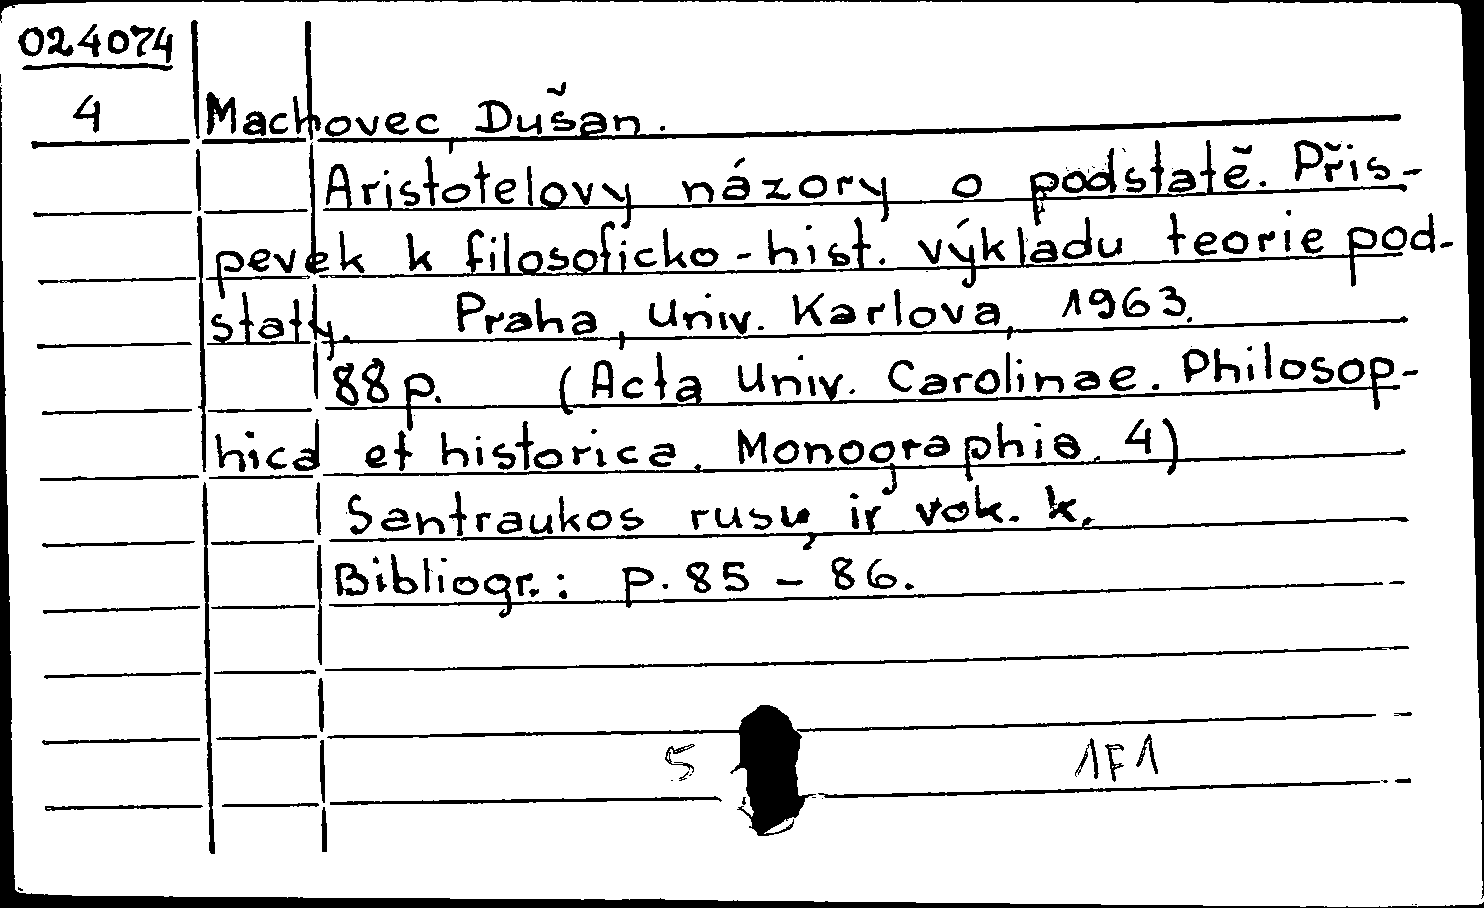 024074
4
Machovec, Dušan.
Aristotelovy názory o podstatě. Přis-
pevek k filosoficko-hist. výkladu teorie pod-
staty. Praha, Univ. Karlova, 1963.
88 p. (Acta Univ. Carolinae. Philosop-
hica et historica. Monographia. 4)
Santraukos rusų ir vok. k.
Bibliogr.: p. 85 – 86.
5 1F1